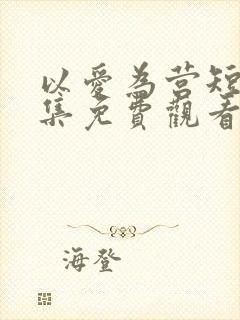 以愛為营短
集免費觀看
海登